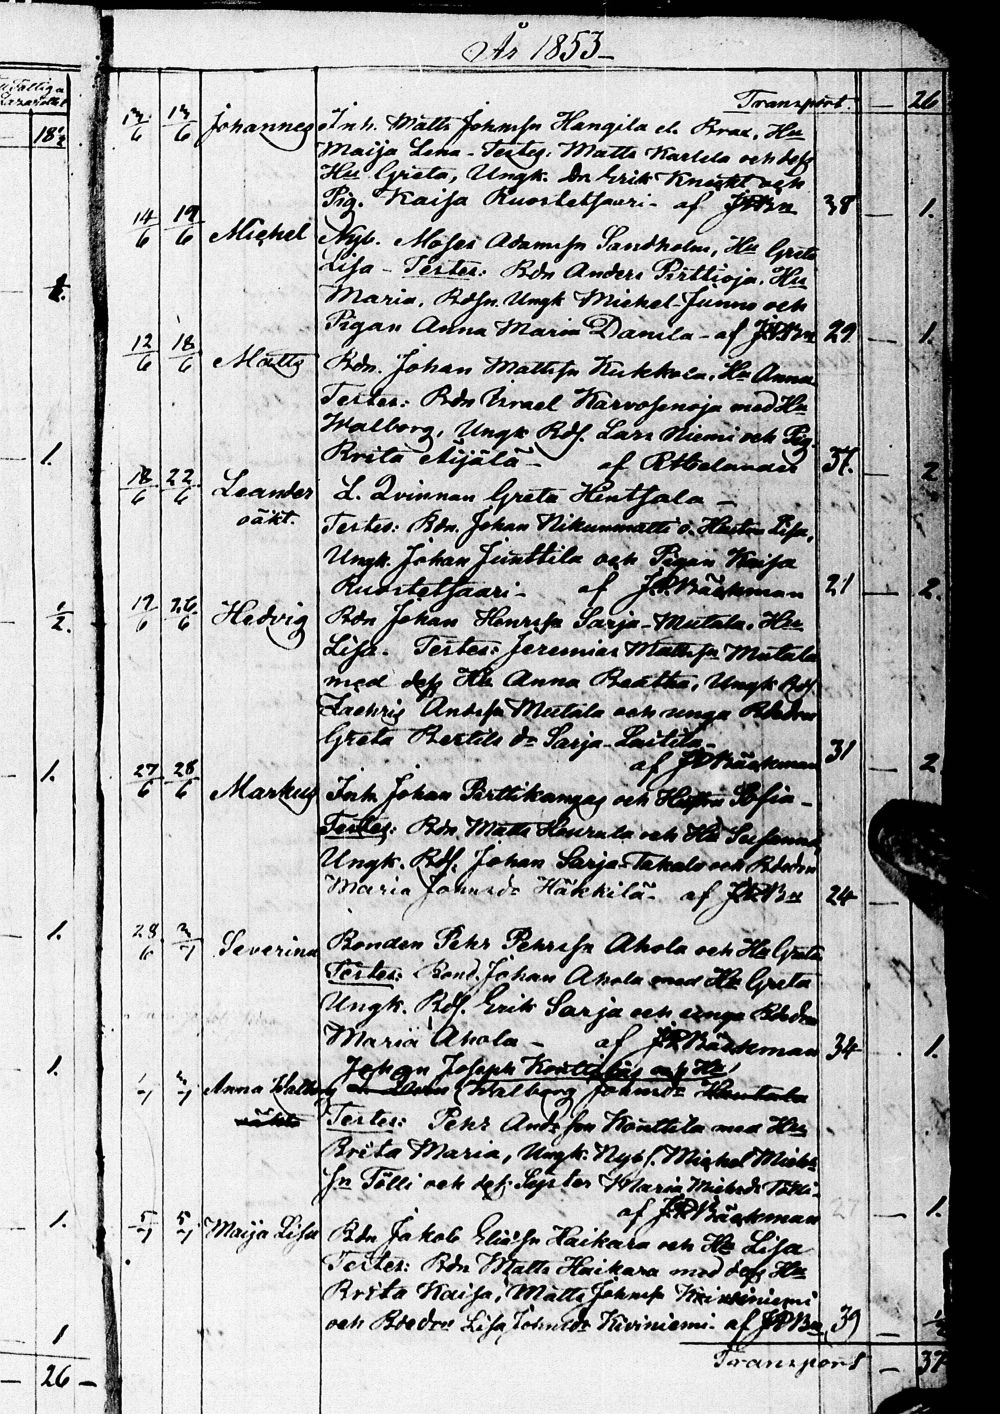 År 1853
Transport. — 26
13/6 13/6 Johannes Inh. Matts Johnssn Hangila el. Brax, Hu
Maija Lena - Testes: Matts Karlela och dess
Hu Greta, Ungk. Dr Erik Knekt och
Pig. Kaisa Ruostetsaari - af JPBn 38 — 1.
14/6 19/6 Michel Nyb. Moses Adamssn Sandholm, Hu Greta
Lisa - Testes: Bdn Anders Pirttioja, Hu
Maria, Bdsn. Ungk Michel Junno och
Pigan Anna Maria Danila - af JPBn 29 — 1.
12/6 18/6 Matts Bdn. Johan Mattssn Kukkola, Hu Anna
Testes: Bdn Israel Karvosenoja med Hu
Walborg, Ungk Bds. Lars Niemi och Pig.
Brita Äijälä - af RHelander 37. — 2
18/6 22/6 Leander L. Qvinnan Greta Hentsala —
oäkt. Testes: Bdn. Johan Nikunmatti o. Hustru Lisa,
Ungk. Johan Junttila och Pigan Kaisa
Ruostetsaari - af JPBäckman 21 — 2.
19/6 26/6 Hedvig Bdn Johan Henrssn Sarja-Matala, Hu
Lisa. Testes: Jeremias Mattssn Matala
med dess Hu Anna Beatha, Ungk Bds.
Zachris Anderssn Matala och unga Bdedra
Greta Bertils dr Sarja-Laitila -
af JPBäckman 31 — 2
27/6 28/6 Markus Inh. Johan Pirttikangas och Hustru Sofia -
Testes: Bdn. Matts Heurala och Hu Susanna,
Ungk. Bds. Johan Sarja-Takalo och Bdedra
Maria Johnsdr Häkkilä - af JPBn 24 —
28/6 3/7 Severina Bonden Pehr Pehrssn Ahola och Hu Greta
Testes: Bond. Johan Ahola med Hu Greta
Ungk. Bds. Erik Sarja och unga Bdedra
Maria Ahola - af JPBäckman 34 — 1.
Johan Joseph Konttikas och Hu
1/7 3/7 Anna Walborg Walborg Johnsdr Hentsala
oäkta Testes: Pehr Anderssn Konttila med Hu
Brita Maria, Ungk: Nybs. Michel Michs
sn Tölli och des: Syster Maria Michsdr Tölli -
af JPBäckman 27 — 1.
5/7 5/7 Maija Lisa Bdn Jakob Eliessn Haikara och Hu Lisa
Testes: Bdn Matts Haikara med dess Hu
Brita Kaisa, Matts Johnssn Kiviniemi
och Bdedra Lisa Johnsdr Kiviniemi - af JPBn 39 — 1/2
Transport — 37
18½
½.
1.
½.
1.
1.
1.
1.
1
26 —